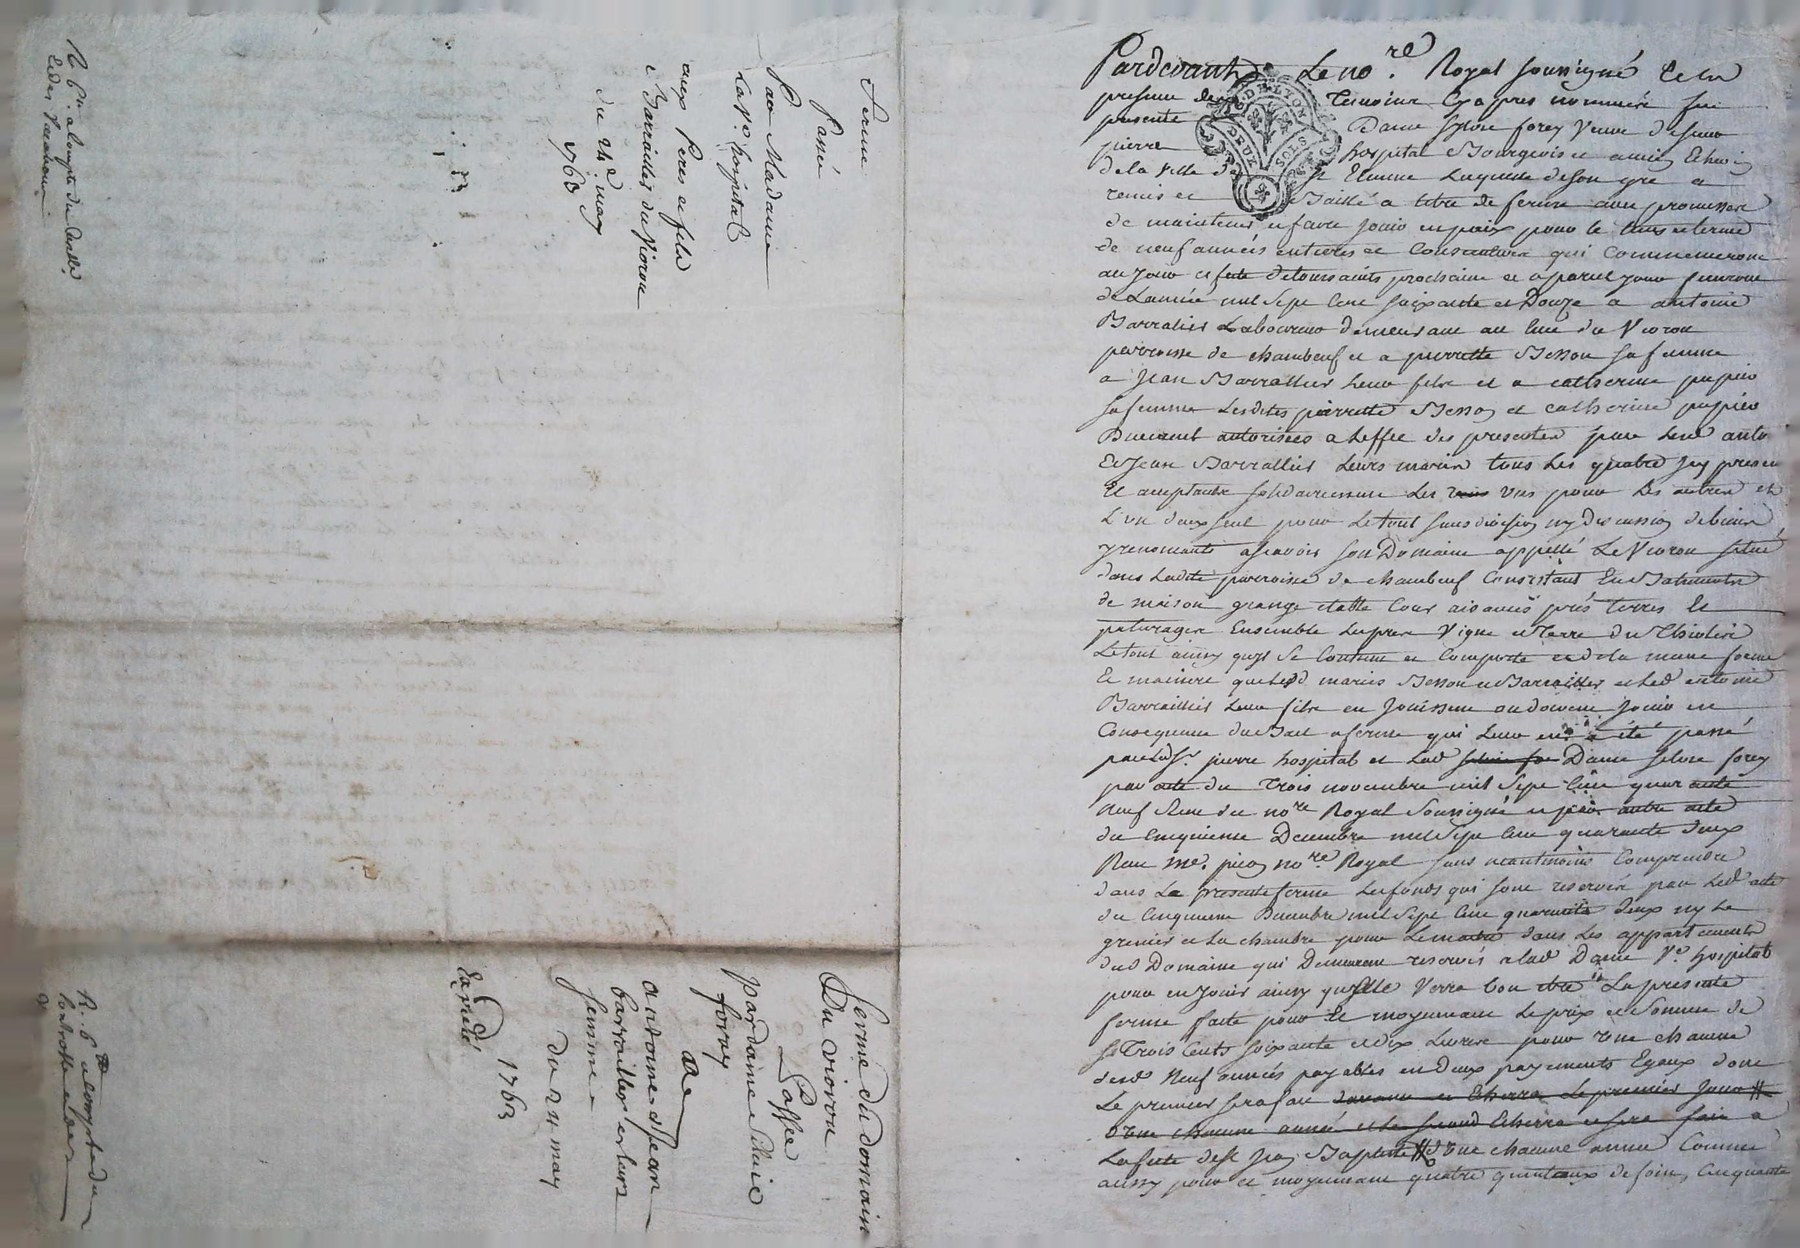 Ferme
Passé
Par Madame
La Ve. hospital
aux Peres et fils
Barrailler du Vioron
du 24e may
1763
Fermé du domain
Du vioron
Passée
par dame Silvie
forey
a
antoine et Jean
barrailler et leurs
femme
du 24 may
1763
Pardevant Le nore. Royal soussigné et en
presence des Temoins Cy apres nommés fu
presente Dame sylvie forey Veuve de sieur
pierre hospital Bourgeois et ancien Echevin
de la Ville de St Etienne Laquelle de son gre a
remis et Baillé a titre de ferme avec promesse
de maintenir et faire Jouir en paix pour le tems et terme
de neuf années entieres et Consecutives qui Commenceront
au Jour et fete de toussaints prochaine et a pareil jour finiront
de L'année mil sept Cent soixante et Douze a antoine
Barralier Laboureur demeurant au lieu du Vioron
parroisse de chambeuf et a pierrette Besson sa femme
a Jean Barrallier Leur fils et a catherine papier
sa femme Lesdites pierrette Besson et catherine papier
Duement autorisées a L'effet des presentes par Lesd anto
Et Jean Barrallier Leurs maris tous Les quatre Icy presen
Et acceptants solidairement Les uns pour Les autres et
L'un d'eux seul pour Le tout sans division ny Discussion de biens
y renoncants a scavoir son Domaine appellé Le Vioron situé
dans Ladite parroisse de chambeuf Consistant En Batiments
de maison grange etable Cour aisances prés terres Et
paturages Ensemble Les prés Vigne et Terre du Thioleire
Le tout ainsy qu'il se Contient et Comporte et de la meme forme
Et maniere que Lesd mariés Besson et Barrallier et Led antoine
Barraillier Leur fils en Jouissent ou doivent Jouir en
Consequence du Bail a ferme qui Leur en a été passé
par Led Sr. pierre hospital et Lad Dame silvie forey
par acte du Trois novembre mil sept Cent quarante
neuf Recu du nore Royal soussigné et par autre acte
du Cinquieme Decembre mil sept Cent quarante deux
Recu me. picon nore Royal sans neantmoins Comprendre
dans La presente ferme Les fonds qui sont reservés par Led acte
du Cinquieme Decembre mil sept Cent quarante deux ny Le
grenier et La chambre pour Le maitre dans Les appartements
dud Domaine qui Demeurent reservés a Lad Dame Ve hospital
pour en Jouir ainsy qu'elle Verra bon etre La presente
ferme faite pour Et moyennant Le prix et somme de
Trois Cents soixante et dix Livres pour une chacune
desd Neuf années payables en Deux payements Egaux dont
Le premier sera fait Le premier Jour
d'une chacune année et Le second Echerra et sera fait a
La fete de st Jean Baptiste # d'une chacune année Comme
aussy pour et moyennant quatre quintaux de foin, Cinquante